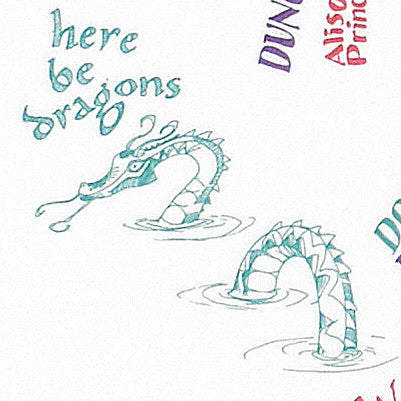 here
be
dragons
DUN
Alis
Prin